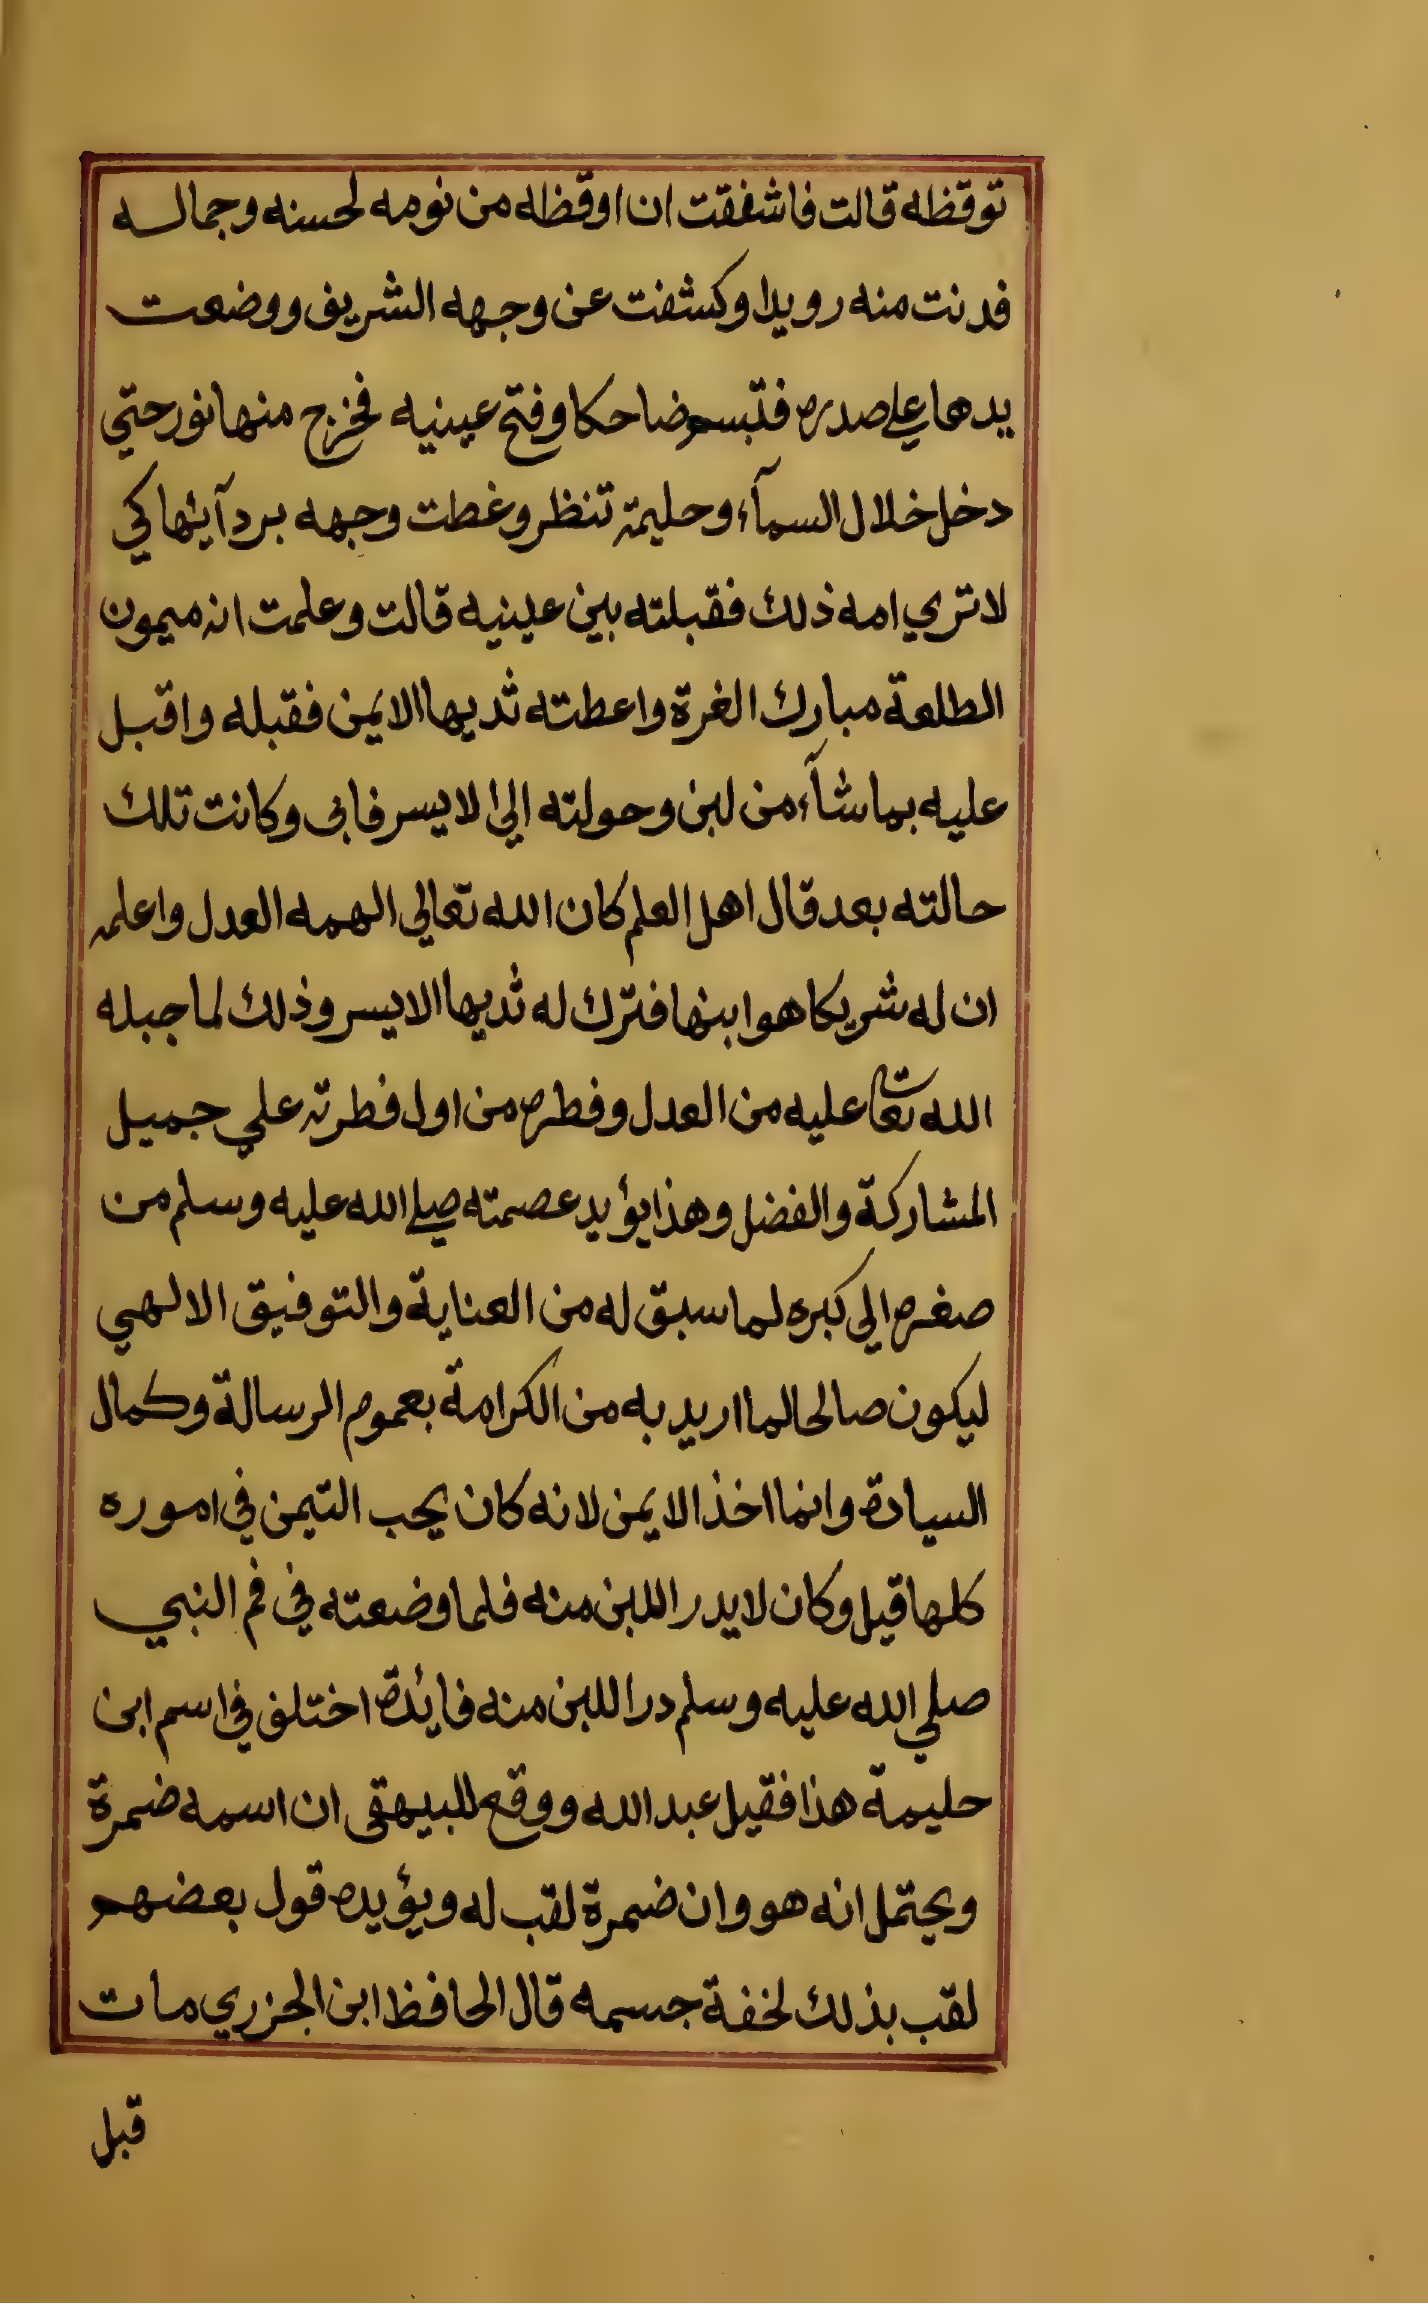 توقظه قالت فاشفقت ان اوقظه من نومه لحسنه وجماله
فدنت منه رويدا وكشفت عن وجهه الشريف ووضعت
يدها علي صدره فتبسم ضاحكا وفتح عينيه فخرج منها نور حتي
دخل خلال السمآء وحليمة تنظر وغطت وجهه بردآيها كي
لا تري امه ذلك فقبلته بين عينيه قالت وعلمت انه ميمون
الطلعة مبارك الغرة واعطته ثديها الايمن فقبله واقبل
عليه بما شآء من لبن وحولته الي لايسر فابى وكانت تلك
حالته بعد قال اهل العلم كان الله تعالي الهمه العدل واعلمه
ان له شريكا هو ابنها فترك له ثديها الايسر وذلك لما جبله
الله تعالي عليه من العدل وفطره من اول فطرته علي جميل
المشاركة والفضل وهذا يؤيد عصمته صلي الله عليه وسلم من
صغره الي كبره لما سبق له من العناية والتوفيق الالهي
ليكون صالحا لما اريد به من الكرامة بعموم الرسالة وكمال
السيادة وانما اخذ الايمن لانه كان يحب التيمن في اموره
كلها قيل وكان لا يدر اللبن منه فلما وضعته في فم النبي
صلي الله عليه وسلم در اللبن منه فايدة اختلف في اسم ابن
حليمة هذا فقيل عبد الله ووقع للبيهقى ان اسمه ضمرة
ويحتمل انه هو وان ضمرة لقب له ويؤيده قول بعضهم
لقب بذلك لخفة جسمه قال الحافظ ابن الجزري مات
قبل